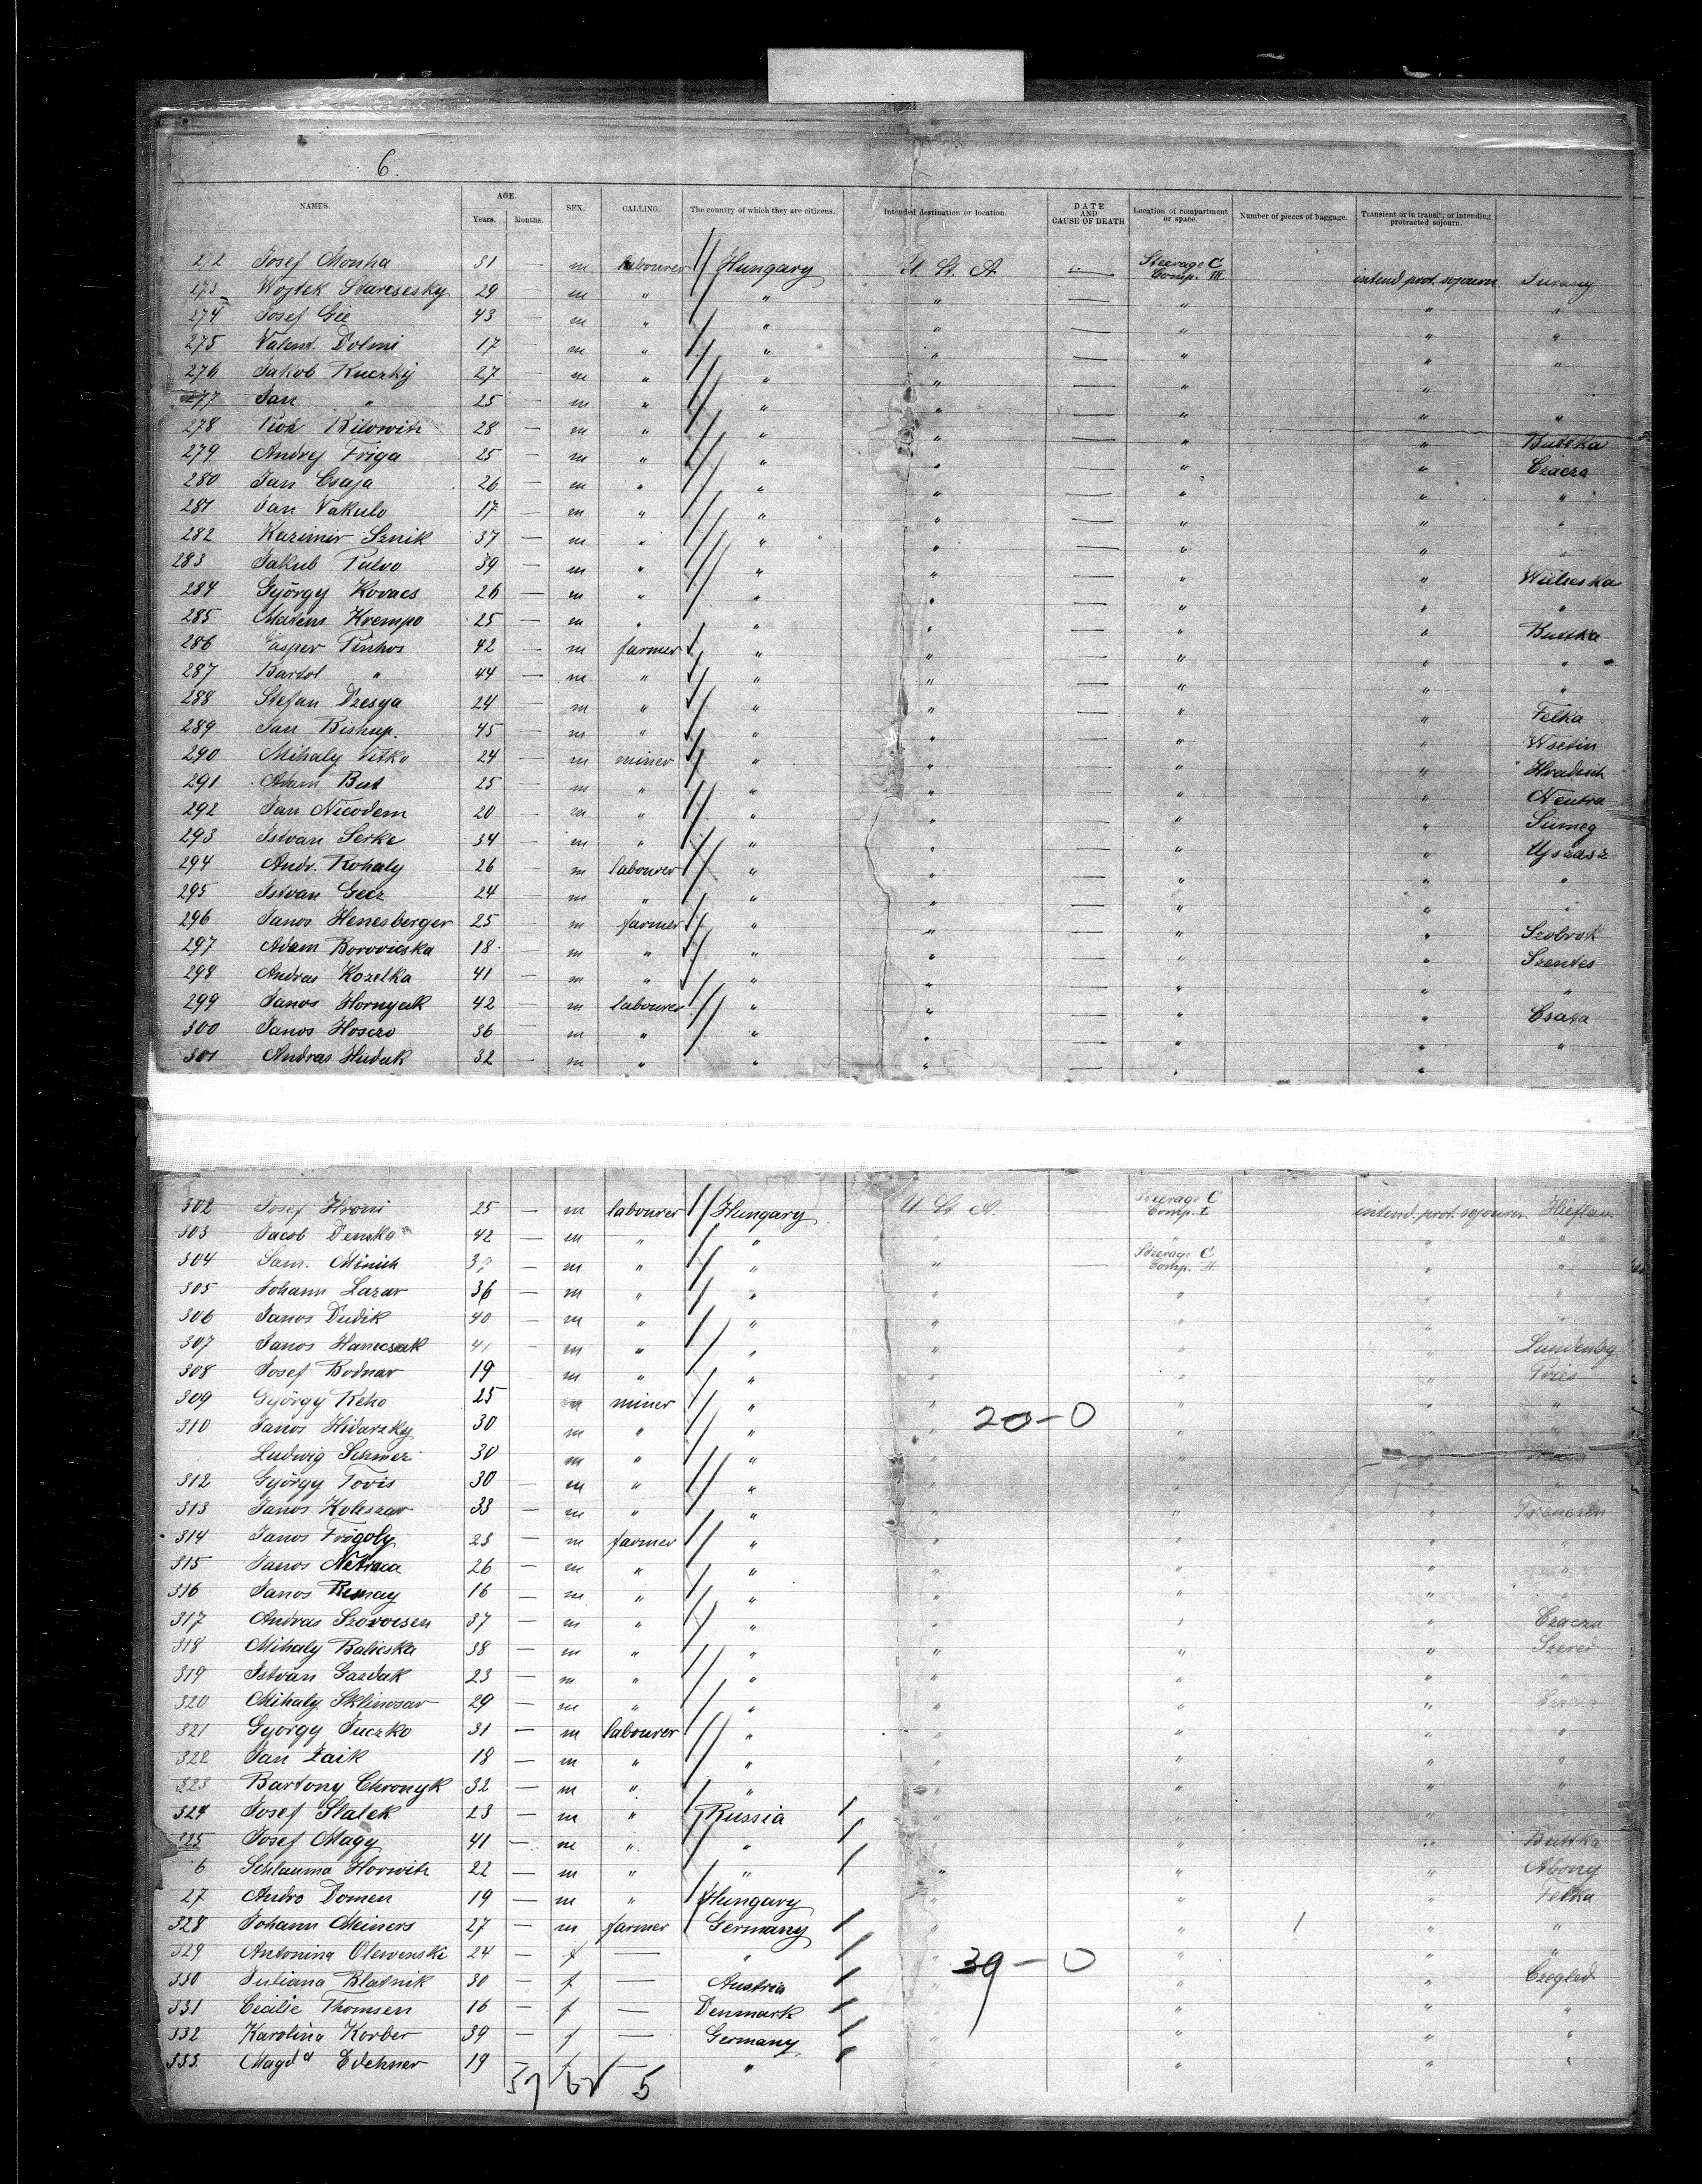 6.
NAMES. AGE. Years. Months. SEX. CALLING. The country of which they are citizens. Intended destination or location. DATE AND CAUSE OF DEATH Location of compartment or space. Number of pieces of baggage. Transient or in transit, or intending protracted sojourn.
272 Josef Monha 31 — m labourer Hungary U. St. A. — Steerage C Comp. III. intend. prot. sojourn Turany
273 Wojtek Starcsesky 29 — m " " " — " " "
274 Josef Gie 43 — m " " " — " " "
275 Valent. Dolmi 17 — m " " " — " " "
276 Jakob Kuczkij 27 — m " " " — " "
277 Jan " 25 — m " " " — " " "
278 Bilowith 28 — m " " " — " " Buttka
279 Andrej Friga 25 — m " " " — " " Czacza
280 Jan Csaja 26 — m " " " — " " "
281 Jan Vakulo 17 — m " " " — " " "
282 Kazimir Sznik 37 — m " " " — " " "
283 Jakub Palvo 39 — m " " " — " "
284 György Kovacs 26 — m " " " — " " "
285 Krempo 25 — m " " " — " " Buttka
286 Casper Pinhos 42 — m farmer " " — " " "
287 Bartol " 44 — m " " " — " " "
288 Stefan Dzesya 24 — m " " " — " " Felka
289 Jan Bishup. 45 — m " " " — " " Wsetin
290 Mihaly Vitko 24 — m miner " " — " " Hradish
291 Adam But 25 — m " " " — " " Neutra
292 Jan Nicodem 20 — m " " " — " " Sümeg
293 Istvan Serke 34 — m " " " — " " Ujszasz
294 Andr. Rohaly 26 — m labourer " " — " " "
295 Istvan Gecz 24 — m " " " — " " "
296 Janos Henesberger 25 — m farmer " " — " " Szobrok
297 Adam Borovicska 18 — m " " " — " " Szentes
298 Andras Kozelka 41 — m " " " — " " "
299 Janos Hornyak 42 — m labourer " " — " " Csata
300 Janos Hoszo 36 — m " " " — " " "
301 Andras Hudak 32 — m " " " — " "
302 Josef Hroni 25 — m labourer Hungary U. St. A. — Steerage C Comp. I. intend. prot. sojourn Hieflau
303 Jacob Demko 42 — m " " " " " "
304 Sam. Minich — m " " " — Steerage C Comp. II. " "
305 Johann Lazar 36 — m " " " " " "
306 Janos Dudik 40 — m " " " " " "
307 Janos Hamcsak 41 — m " " " " " Lundenbg
308 Josef Bodnar 19 m " " " " "
309 György Reho 25 m miner " " " " "
310 Janos Hidarzky 30 m " " " 20-0 " " "
Ludwig Schmer 30 m " " " " "
312 György Tovis 30 — m " " " " " "
313 Janos Koleszar 33 — m " " " " " Trenczin
314 Janos Frögoly 23 — m farmer " " " " "
315 Janos Netraca 26 — m " " " " " "
316 Janos Remay 16 — m " " " " " "
317 Andras Szovorsen 37 — m " " " " " Czacza
318 Mihaly Balicska 38 — m " " " " " Szered
319 Istvan Gazdak 23 — m " " " " " "
320 Mihaly Sklinosar 29 — m " " " " " Czacza
321 György Juczko 31 — m labourer " " " " "
322 Jan Zaik 18 — m " " " " " "
323 Bartony Chronyk 32 — m " " " " " "
324 Josef Slatek 23 — m " Russia " " " "
325 Josef Magy 41 — m " " " " " Buttka
6 Schlauma Horwith 22 — m " " " " " Abony
27 Andro Domen 19 — m " Hungary " " " Felka
328 Johann Meiners 27 — m farmer Germany " " 1 " "
329 Antonina Olewenski 24 — f — " " 39-0 " " "
330 Juliana Blatnik 30 — f — Austria " " " Czegled
331 Cecilie Thomsen 16 — f — Denmark " " " "
332 Karolina Korber 39 — f — Germany " " " "
333. Magda Edehner 19 — f — " " " " "
57 62 5